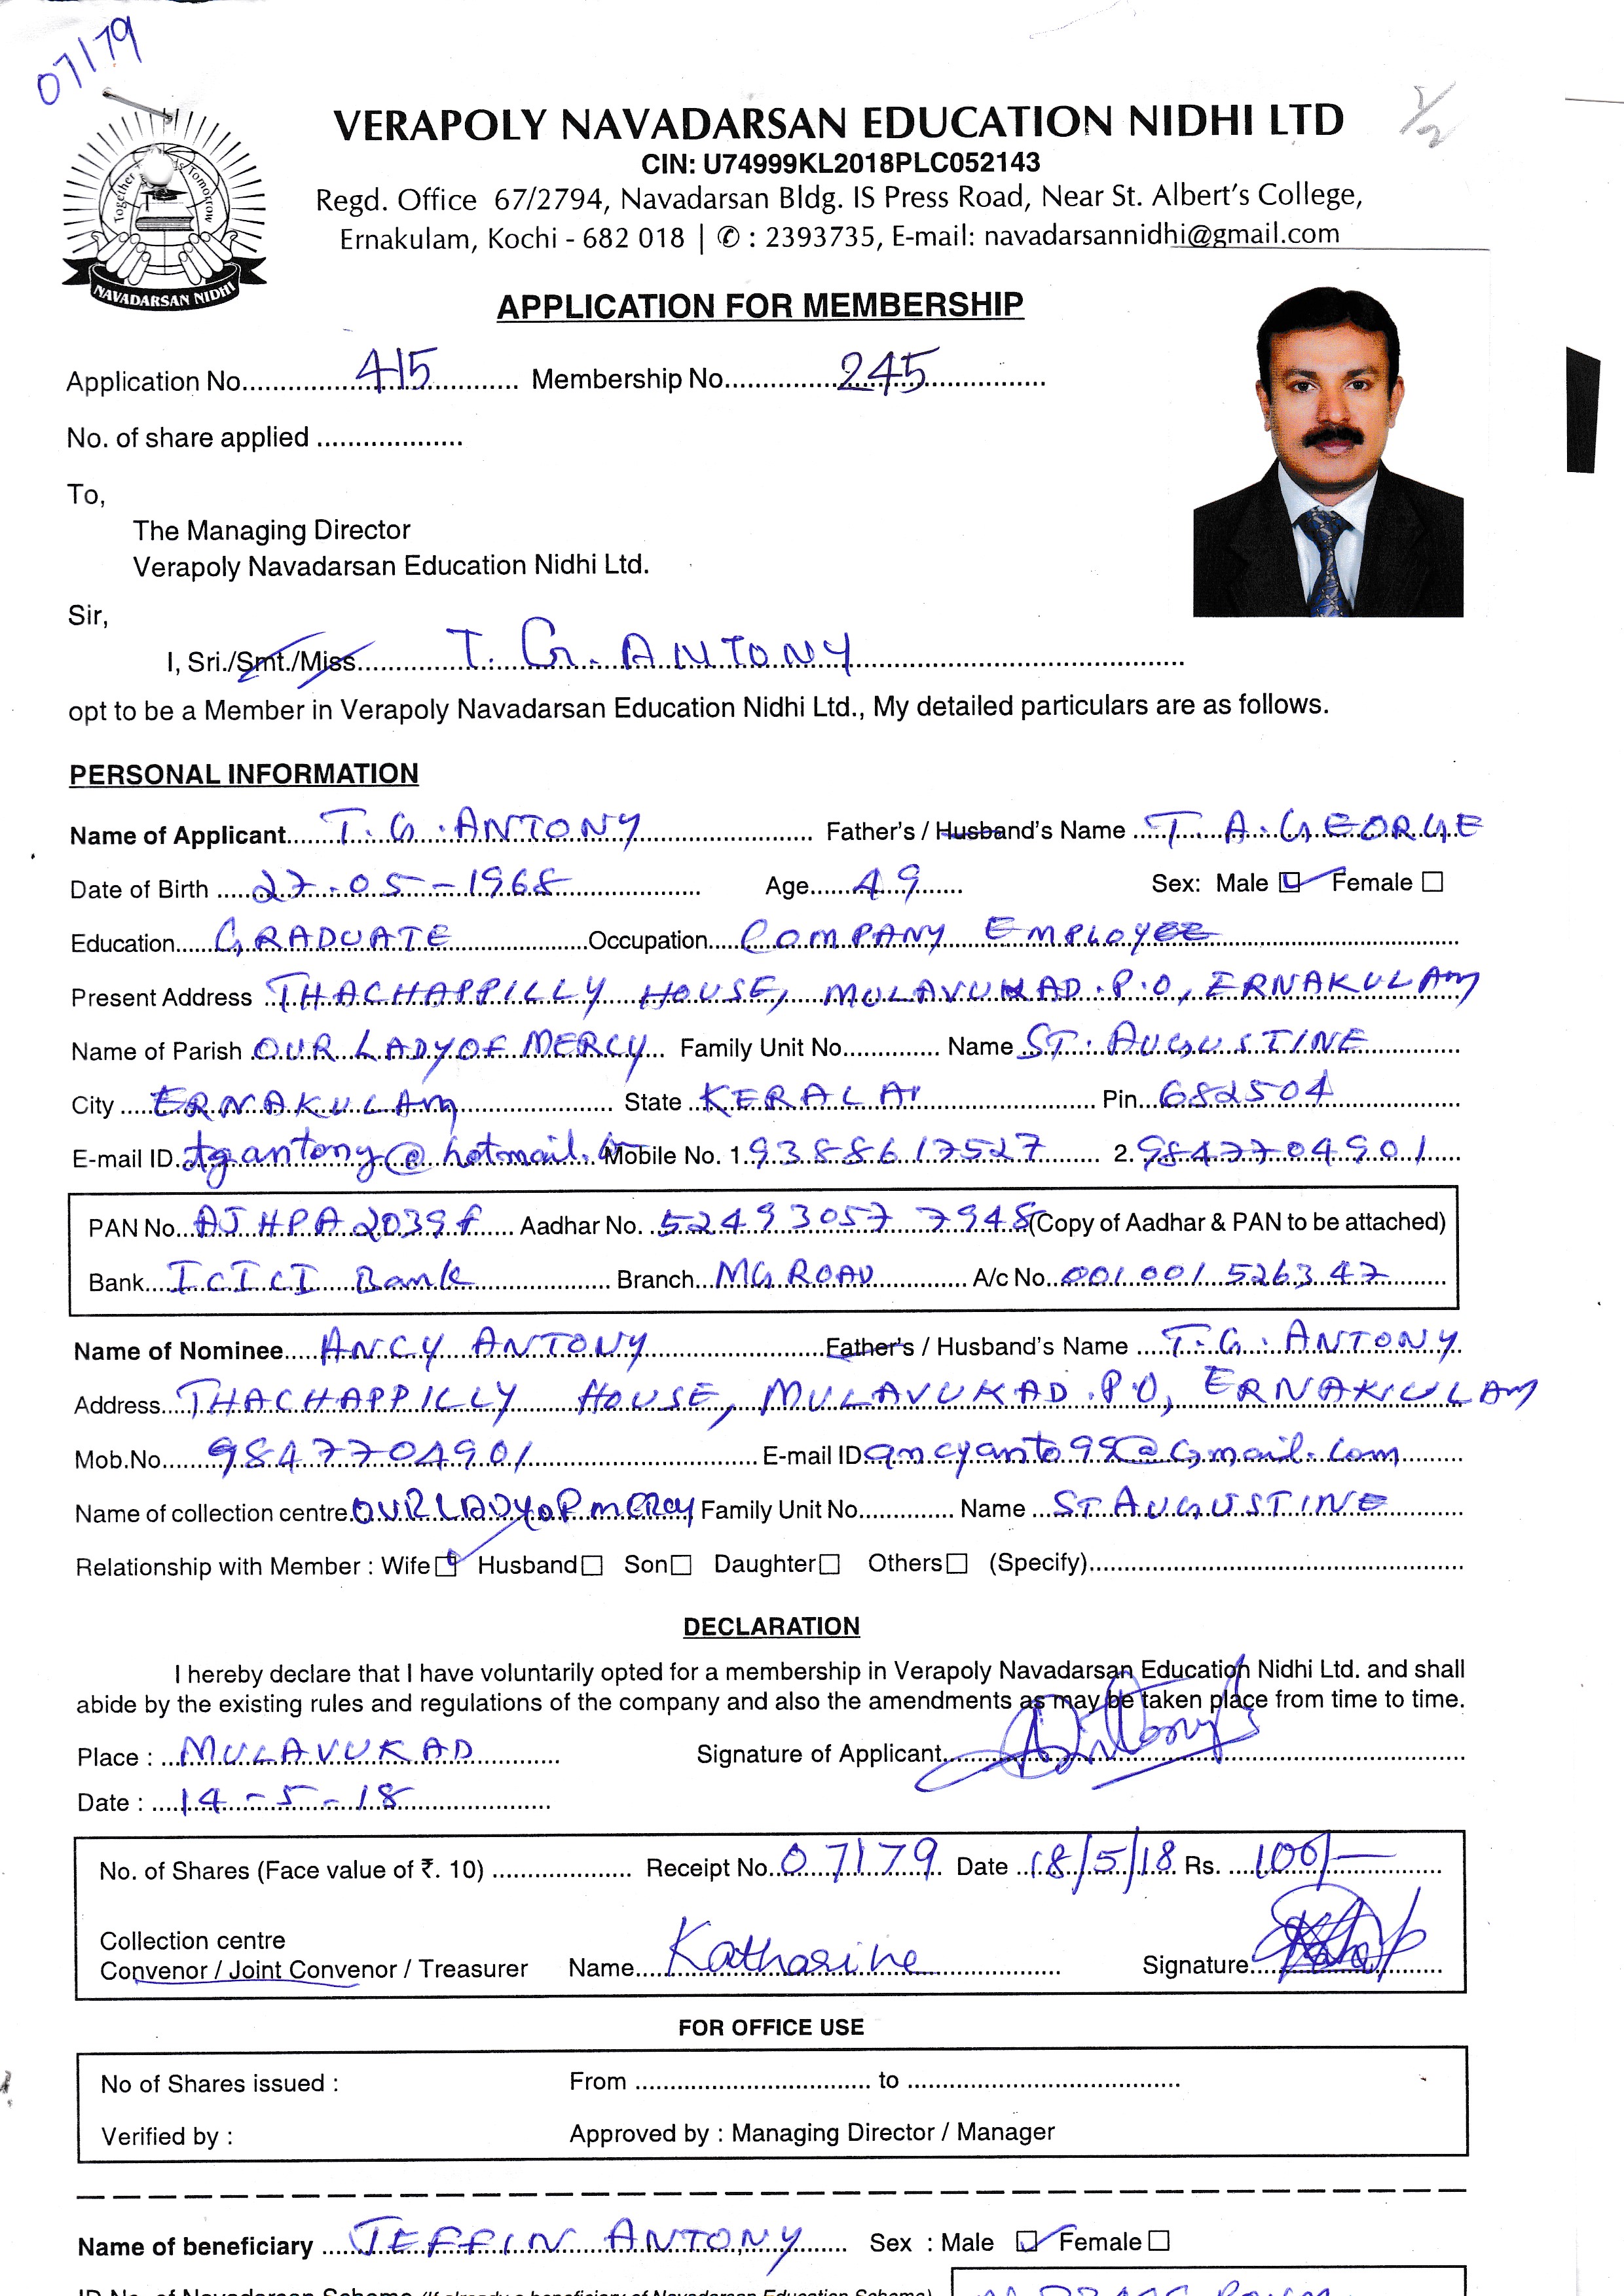 07179
VERAPOLY NAVADARSAN EDUCATION NIDHI LTD
CIN: U74999KL2018PLC052143
Regd. Office 67/2794, Navadarsan Bldg. IS Press Road, Near St. Albert's College,
Ernakulam, Kochi - 682 018 | ✆ : 2393735, E-mail: navadarsannidhi@gmail.com
Together Tomorrow
NAVADARSAN NIDHI
APPLICATION FOR MEMBERSHIP
Application No. 415 Membership No. 245
No. of share applied ...................
To,
The Managing Director
Verapoly Navadarsan Education Nidhi Ltd.
Sir,
I, Sri./Smt./Miss T. G. ANTONY
opt to be a Member in Verapoly Navadarsan Education Nidhi Ltd., My detailed particulars are as follows.
PERSONAL INFORMATION
Name of Applicant T. G. ANTONY Father's / Husband's Name T. A. GEORGE
Date of Birth 27-05-1968 Age 49 Sex: Male ☑ Female ☐
Education GRADUATE Occupation COMPANY EMPLOYEE
Present Address THACHAPPILLY HOUSE, MULAVUKAD.P.O, ERNAKULAM
Name of Parish OUR LADY OF MERCY Family Unit No............. Name ST. AUGUSTINE
City ERNAKULAM State KERALA Pin 682504
E-mail ID tgantony@hotmail. Mobile No. 1. 9388617527 2. 9847704901
PAN No. AJHPA2039f Aadhar No. 52493057 7948 (Copy of Aadhar & PAN to be attached)
Bank ICICI Bank Branch MG ROAD A/c No. 001001526347
Name of Nominee ANCY ANTONY Father's / Husband's Name T. G. ANTONY
Address THACHAPPILLY HOUSE, MULAVUKAD.P.O, ERNAKULAM
Mob.No. 9847704901 E-mail ID ancyanto98@Gmail.com
Name of collection centre OUR LADY OF MERCY Family Unit No............. Name ST AUGUSTINE
Relationship with Member : Wife ☑ Husband ☐ Son ☐ Daughter ☐ Others ☐ (Specify)
DECLARATION
I hereby declare that I have voluntarily opted for a membership in Verapoly Navadarsan Education Nidhi Ltd. and shall
abide by the existing rules and regulations of the company and also the amendments as may be taken place from time to time.
Place : MULAVUKAD Signature of Applicant Antony
Date : 14-5-18
No. of Shares (Face value of ₹. 10) Receipt No. 07179 Date 18/5/18 Rs. 100/-
Collection centre
Convenor / Joint Convenor / Treasurer Name Katharine Signature
FOR OFFICE USE
No of Shares issued : From .................... to ....................
Verified by : Approved by : Managing Director / Manager
Name of beneficiary JEFFIN ANTONY Sex : Male ☑ Female ☐